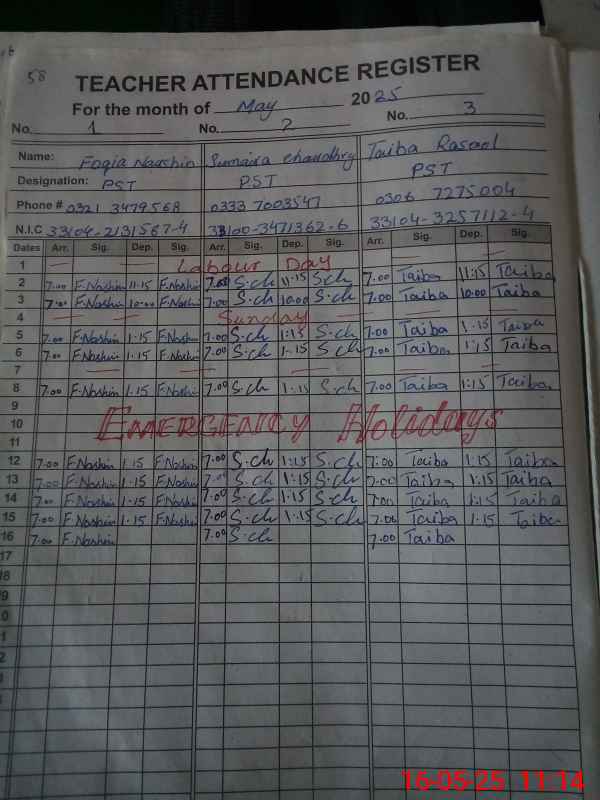 58
TEACHER ATTENDANCE REGISTER
For the month of May 2025
No. 1 No. 2 No. 3
Name: Foqia Naushin Sumaira Chaudhry Taiba Rasool
Designation: PST PST PST
Phone # 0321 3479568 0333 7003547 0306 7275004
N.I.C 33104-2131567-4 33100-3471362-6 33104-3257112-4
Dates Arr. Sig. Dep. Sig. Arr. Sig. Dep. Sig. Arr. Sig. Dep. Sig.
1 — — Labour Day —
2 7.00 F.Noshin 11.15 F.Noshin 7.00 S.ch 11:15 S.ch 7.00 Taiba 11:15 Taiba
3 7.00 F.Noshin 10.00 F.Noshin 7.00 S.ch 10.00 S.ch 7.00 Taiba 10.00 Taiba
4 — — Sunday — — — —
5 7.00 F.Noshin 1.15 F.Noshin 7.00 S.ch 1:15 S.ch 7.00 Taiba 1.15 Taiba
6 7.00 F.Noshin 1.15 F.Noshin 7.00 S.ch 1.15 S.ch 7.00 Taiba 1:15 Taiba
7 — — — — — —
8 7.00 F.Noshin 1.15 F.Noshin 7.00 S.ch 1.15 S.ch 7.00 Taiba 1:15 Taiba
9
10 EMERGENCY Holidays
11
12 7.00 F.Noshin 1.15 F.Noshin 7.00 S.ch 1:15 S.ch 7.00 Taiba 1.15 Taiba
13 7.00 F.Noshin 1.15 F.Noshin 7.00 S.ch 1:15 S.ch 7.00 Taiba 1.15 Taiba
14 7.00 F.Noshin 1.15 F.Noshin 7.00 S.ch 1.15 S.ch 7.00 Taiba 1:15 Taiba
15 7.00 F.Noshin 1.15 F.Noshin 7.00 S.ch 1.15 S.ch 7.00 Taiba 1.15 Taiba
16 7.00 F.Noshin 7.00 S.ch 7.00 Taiba
17
18
9
0
1
2
16-05-25 11:14